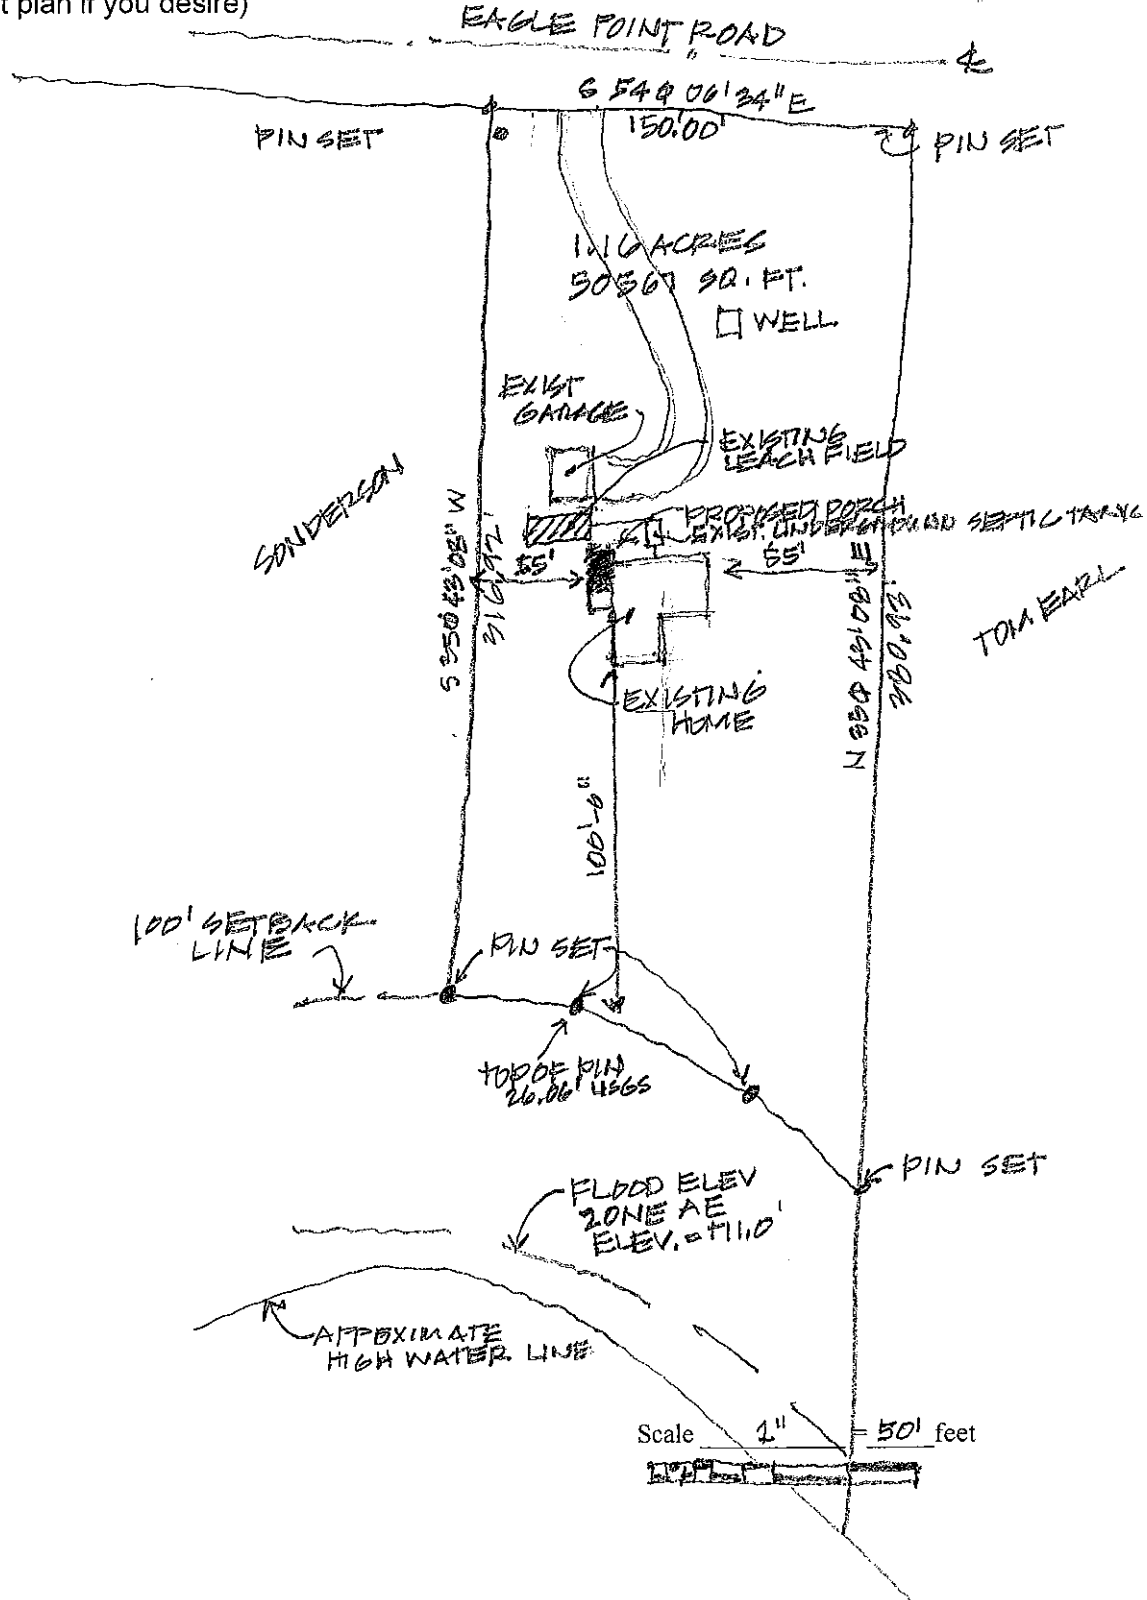 t plan if you desire)
EAGLE POINT ROAD
S 54° 06' 34" E
150.00'
PIN SET
PIN SET
1.16 ACRES
50567 SQ. FT.
WELL
EXIST
GARAGE
EXISTING
LEACH FIELD
PROPOSED PORCH
EXIST. UNDERGROUND SEPTIC TANK
SONDERSON
55'
55'
TOM EARL
EXISTING
HOME
100'-6"
100' SETBACK
LINE
PIN SET
TOP OF PIN
26.06' USGS
PIN SET
FLOOD ELEV
ZONE AE
ELEV. = +11.0'
APPROXIMATE
HIGH WATER LINE
Scale 1" = 50' feet